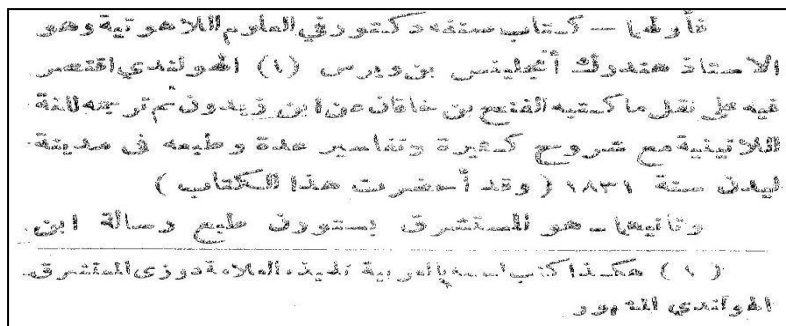 فأولها — كتاب صنفه دكتور في العلوم اللاهوتية وهو
الاستاذ هندوك أنجلينس بن ويرس (١) الهولندي اقتصر
فيه على نقل ما كتبه الفتح بن خاقان عن ابن زيدون ثم ترجمه للغة
اللاتينية مع شروح كثيرة وتفاسير عدة وطبعه في مدينة
ليدن سنة ١٨٣١ ( وقد أحضرت هذا الكتاب )
وثانيها ـ هو المستشرق بستورن طبع رسالة ابن
( ١ ) هكذا كتب اسمه بالعربية تلميذه العلامة دوزى المستشرق
الهولندي المشهور